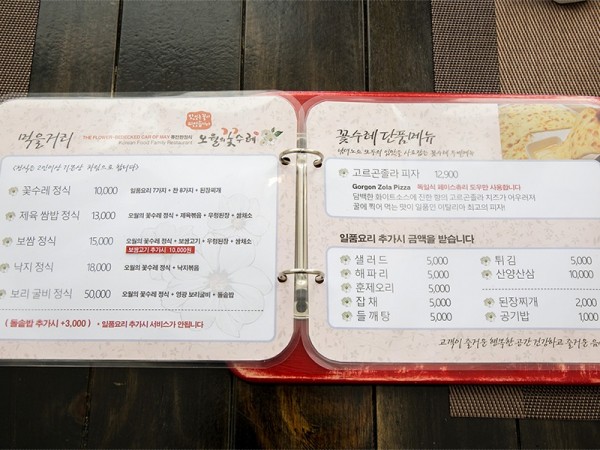 먹을거리
THE FLOWER-BEDECKED CAR OF MAY
Korean Food Family Restaurant
오월의꽃수레
꽃수레 정식 10,000 일품요리 7가지 + 찬 8가지 + 된장찌개
제육 쌈밥 정식 13,000 오월의 꽃수레 정식 + 제육볶음 + 우렁된장 + 쌈채소
보쌈 정식 15,000 오월의 꽃수레 정식 + 보쌈고기 + 우렁된장 + 쌈채소
보쌈고기 추가시 10,000원
낙지 정식 18,000 오월의 꽃수레 정식 + 낙지볶음
보리 굴비 정식 50,000 오월의 꽃수레 정식 + 영광 보리굴비 + 돌솥밥
( 돌솥밥 추가시 +3,000 ) • 일품요리 추가시 서비스가 안됩니다
꽃수레 단품메뉴
고르곤졸라 피자 12,900
Gorgon Zola Pizza 독일식 페이스츄리 도우만 사용합니다
담백한 화이트소스에 진한 향의 고르곤졸라 치즈가 어우러져
꿀에 찍어 먹는 맛이 일품인 이탈리아 최고의 피자!
일품요리 추가시 금액을 받습니다
샐러드 5,000
해파리 5,000
훈제오리 5,000
잡채 5,000
들깨탕 5,000
튀김 5,000
산양산삼 10,000
된장찌개 2,000
공기밥 1,000
고객이 즐거운 행복한 공간 건강하고 즐거운